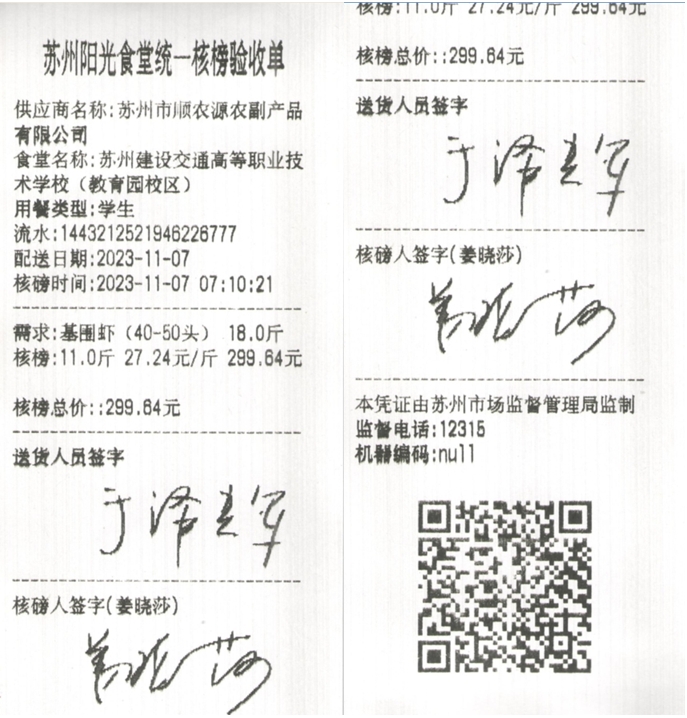 苏州阳光食堂统一核榜验收单
供应商名称:苏州市顺农源农副产品
有限公司
食堂名称:苏州建设交通高等职业技
术学校（教育园校区）
用餐类型:学生
流水:1443212521946226777
配送日期:2023-11-07
核磅时间:2023-11-07 07:10:21
需求:基围虾（40-50头） 18.0斤
核榜:11.0斤 27.24元/斤 299.64元
核榜总价::299.64元
送货人员签字
核磅人签字(姜晓莎)
姜晓莎
核榜:11.0斤 27.24元/斤 299.64元
核榜总价::299.64元
送货人员签字
核磅人签字(姜晓莎)
姜晓莎
本凭证由苏州市场监督管理局监制
监督电话:12315
机器编码:null